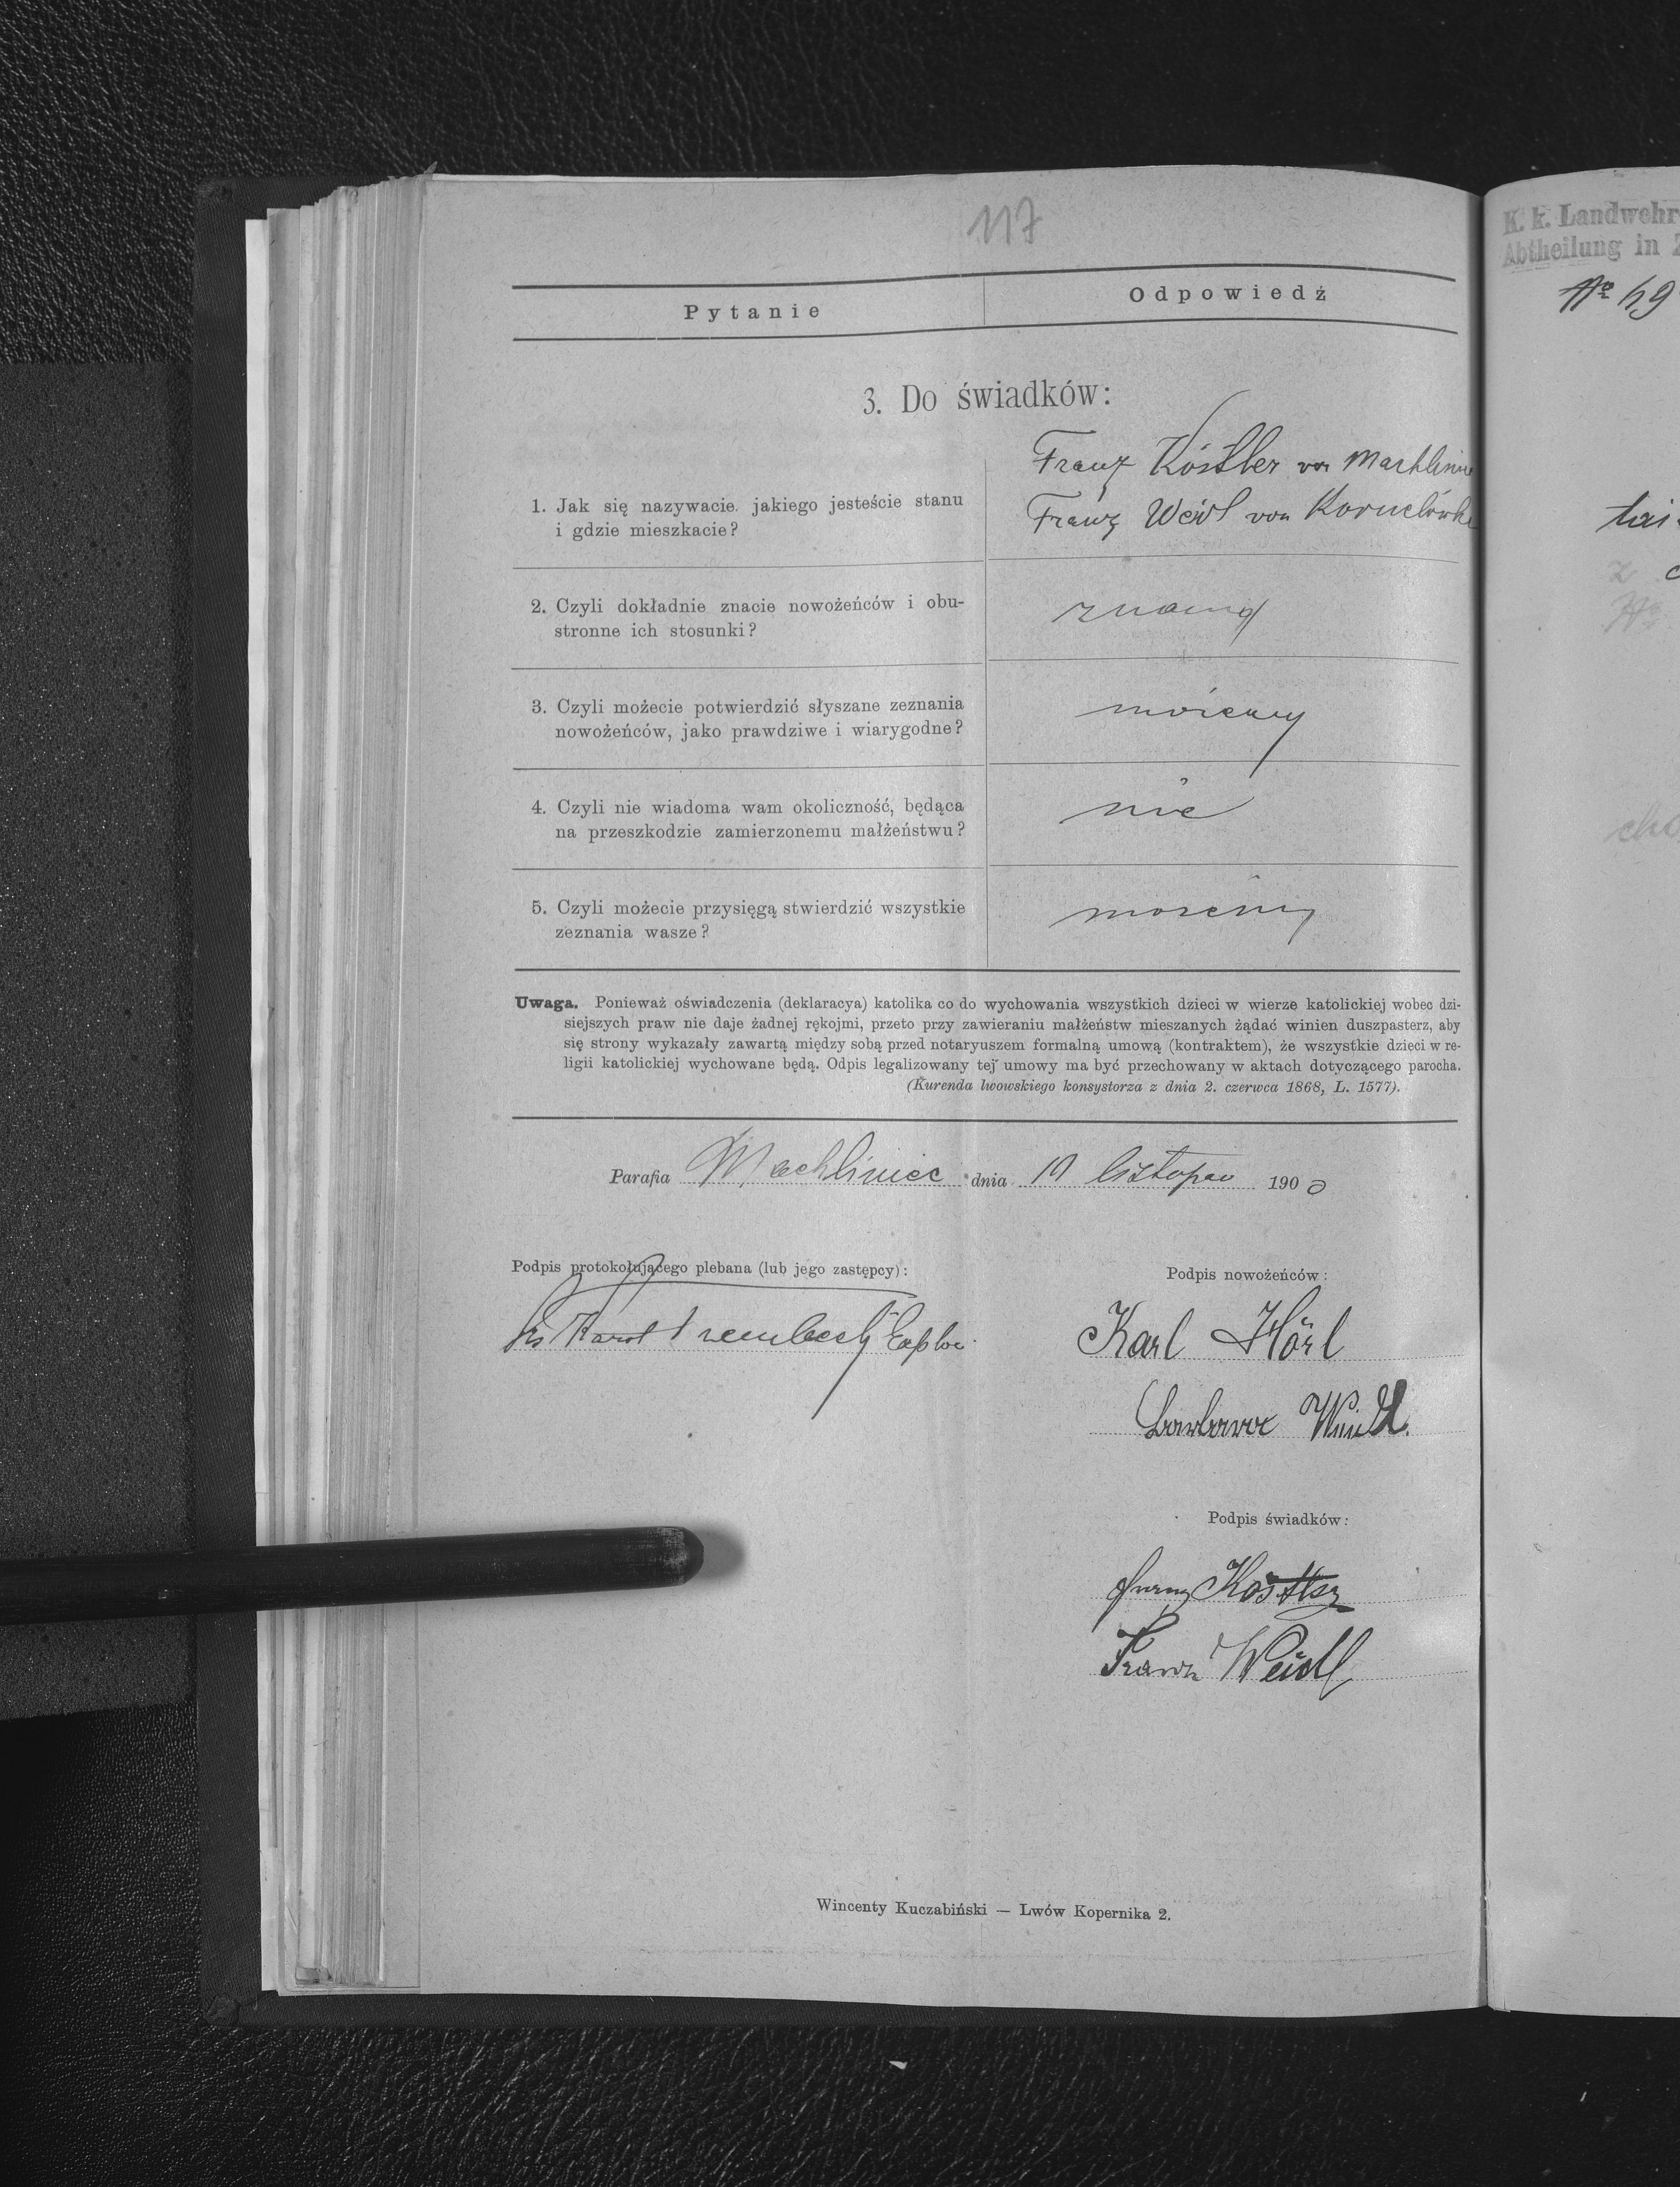 117
Pytanie
Odpowiedź
3. Do świadków:
Franz Köstler von Machlinie
Franz Weidl von Kornelówka
1. Jak się nazywacie. jakiego jesteście stanu
i gdzie mieszkacie?
2. Czyli dokładnie znacie nowożeńców i obu-
stronne ich stosunki?
znamy
3. Czyli możecie potwierdzić słyszane zeznania
nowożeńców, jako prawdziwe i wiarygodne?
możemy
4. Czyli nie wiadoma wam okoliczność, będąca
na przeszkodzie zamierzonemu małżeństwu?
nie
5. Czyli możecie przysięgą stwierdzić wszystkie
zeznania wasze?
możemy
Uwaga. Ponieważ oświadczenia (deklaracya) katolika co do wychowania wszystkich dzieci w wierze katolickiej wobec dzi-
siejszych praw nie daje żadnej rękojmi, przeto przy zawieraniu małżeństw mieszanych żądać winien duszpasterz, aby
się strony wykazały zawartą między sobą przed notaryuszem formalną umową (kontraktem), że wszystkie dzieci w re-
ligii katolickiej wychowane będą. Odpis legalizowany tej umowy ma być przechowany w aktach dotyczącego parocha.
(Kurenda lwowskiego konsystorza z dnia 2. czerwca 1868, L. 1577).
Parafia Machliniec dnia 19 listopad 1900
Podpis protokołującego plebana (lub jego zastępcy):
Karol
Podpis nowożeńców:
Karl Hörl
Barbara Weidl.
Podpis świadków:
Franz Köstler
Franz Weidl
Wincenty Kuczabiński — Lwów Kopernika 2.
K. k. Landwehr
Abtheilung in
№ 69